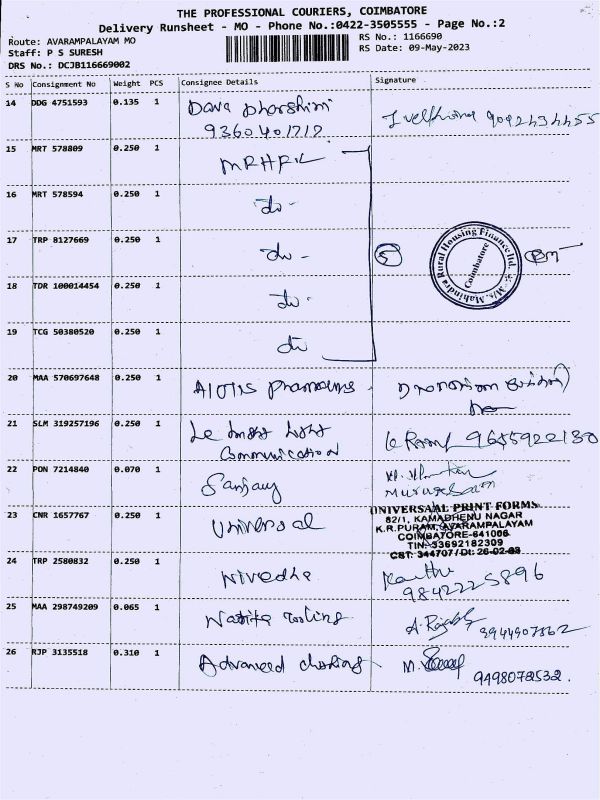 THE PROFESSIONAL COURIERS, COIMBATORE
Delivery Runsheet - MO - Phone No.:0422-3505555 - Page No.:2
Route: AVARAMPALAYAM MO
Staff: P S SURESH
DRS No.: DCJB116669002
RS No.: 1166690
RS Date: 09-May-2023
S No Consignment No Weight PCS Consignee Details Signature
14 DDG 4751593 0.135 1 Dava Dharshini
9360401717
15 MRT 578809 0.250 1 MRHFL
16 MRT 578594 0.250 1 do-
17 TRP 8127669 0.250 1 do-
5
Mahindra Rural Housing Finance ltd. Coimbatore
18 TDR 100014454 0.250 1 do-
19 TCG 50380520 0.250 1 do
20 MAA 570697648 0.250 1
21 SLM 319257196 0.250 1 Le light
Communication 9655922130
22 PON 7214840 0.070 1 Sanjay
23 CNR 1657767 0.250 1 Universal
UNIVERSAAL PRINT FORMS
82/1, KAMADHENU NAGAR
K.R.PURAM, AVARAMPALAYAM
COIMBATORE-641006
TIN:33692182309
CST: 344707/Dt: 26-02-93
24 TRP 2580832 0.250 1 Nivedha
9842225896
25 MAA 298749209 0.065 1 9944907362
26 RJP 3135518 0.310 1 Advanced
9498078532.